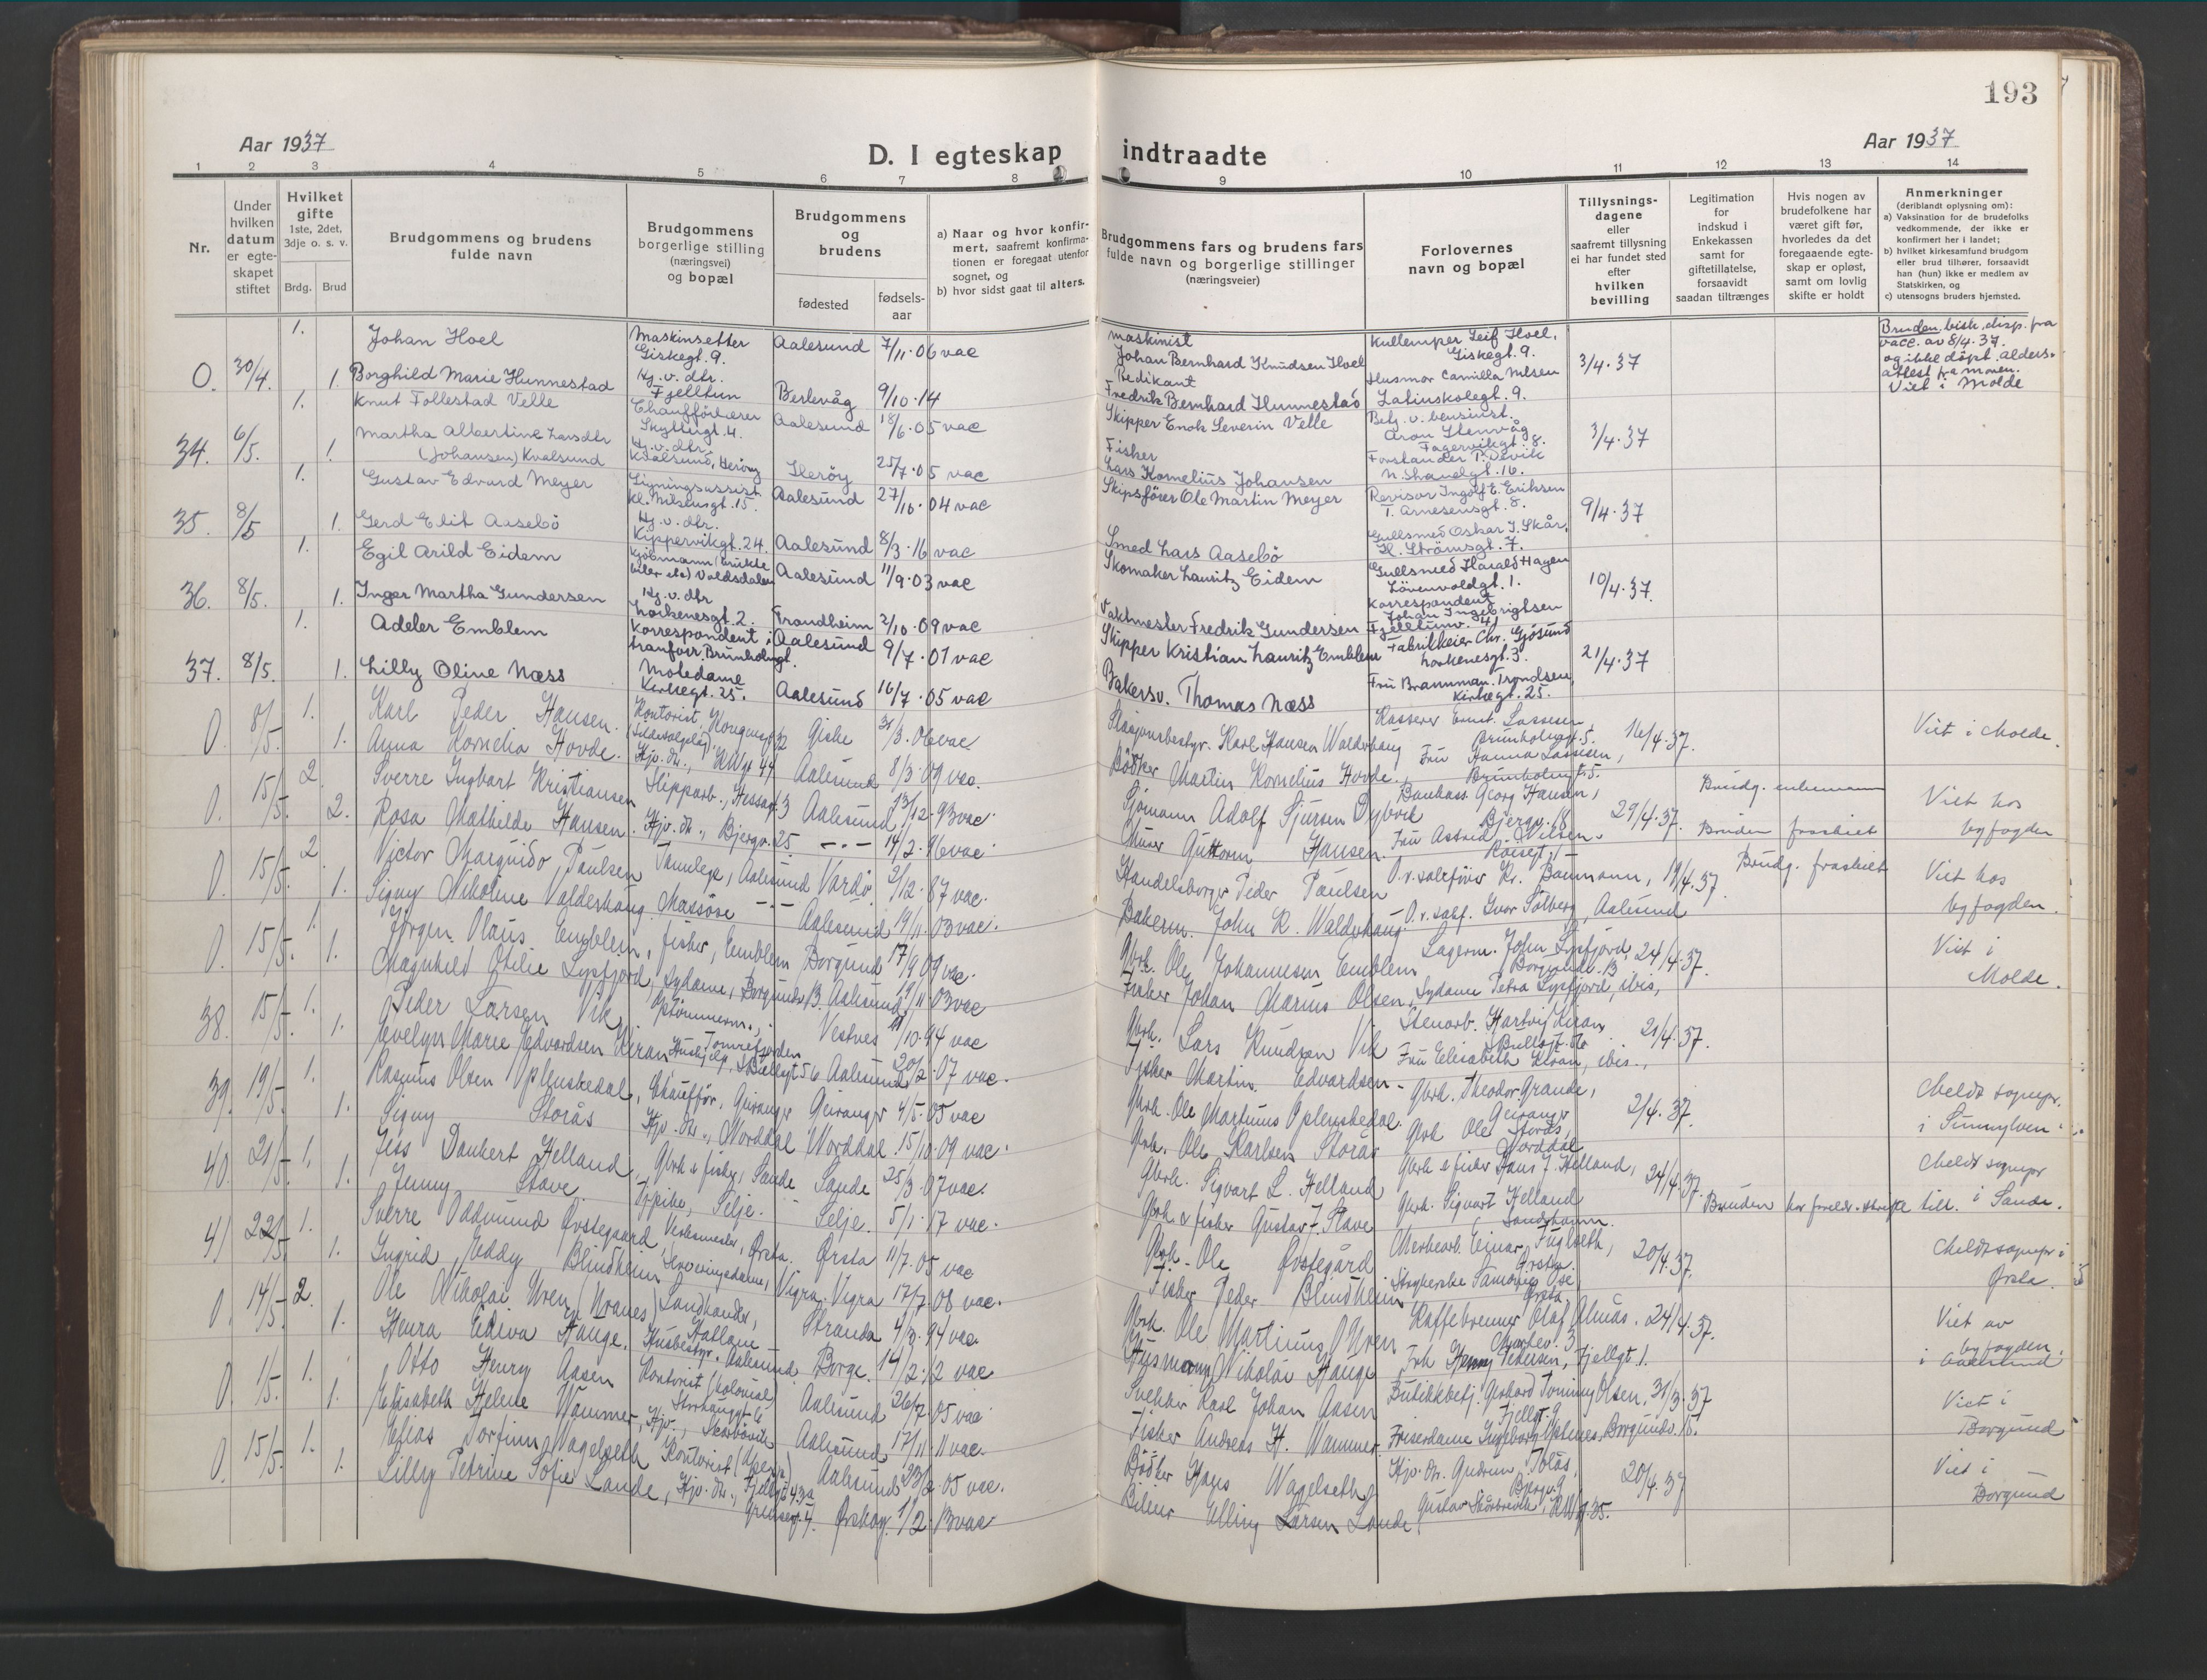 193
Aar 1937
D. I egteskap indtraadte
Aar 1937
1 2 3 4 5 6 7 8 9 10 11 12 13 14
Nr.
Under hvilken datum er egteskapet stiftet
Hvilket gifte 1ste, 2det, 3dje o. s. v.
Brdg. Brud
Brudgommens og brudens fulde navn
Brudgommens borgerlige stilling (næringsvei) og bopæl
Brudgommens og brudens
fødested
fødselsaar
a) Naar og hvor konfirmert, saafremt konfirmationen er foregaat utenfor sognet, og
b) hvor sidst gaat til alters.
Brudgommens fars og brudens fars fulde navn og borgerlige stillinger (næringsveier)
Forlovernes navn og bopæl
Tillysningsdagene eller saafremt tillysning ei har fundet sted efter hvilken bevilling
Legitimation for indskud i Enkekassen samt for giftetillatelse, forsaavidt saadan tiltrænges
Hvis nogen av brudefolkene har været gift før, hvorledes da det foregaaende egteskap er opløst, samt om lovlig skifte er holdt
Anmerkninger (deriblandt oplysning om):
a) Vaksination for de brudefolks vedkommende, der ikke er konfirmert her i landet;
b) hvilket kirkesamfund brudgom eller brud tilhører, forsaavidt han (hun) ikke er medlem av Statskirken, og
c) utensogns bruders hjemsted.
0. 30/4. 1. Johan Hoel Maskinsetter Giskegt. 9. Aalesund 7/11.06 vac maskinist Johan Bernhard Knudsen Hoel Kullemper Leif Hoel, Giskegt. 9. 3/4.37
1. Borghild Marie Hunnestad Hj. v. dtr. Fjelltun Berlevåg 9/10.14 Predikant Fredrik Bernhard Hunnestad Husmor Camilla Nilsen Latinskolegt. 9.
Bruden bisk. disp. fra vacc. av 8/4.37. og ikke döpt. alders-attest fra moren. Viet i Molde
34. 6/5. 1. Knut Follestad Velle Chaufförlærer Skyttergt. 4. Aalesund 18/6.05 vac Skipper Enok Severin Velle Betj. v. bensinst. Aron Stenvåg Fagervikgt. 8. 3/4.37
1. Martha Albertine Larsdtr (Johansen) Kvalsund Hj. v. dtr. Kvalsund, Heröy Heröy 25/7.05 vac Fisker Lars Kornelius Johansen Forstander T. Devik N. Strandgt. 16.
35. 8/5 1. Gustav Edvard Meyer Ligningsassist. Aalesund 27/10.04 vac Skipsförer Ole Martin Meyer Revisor Ingolf E. Eriksen T. Arnesensgt. 8. 9/4.37
1. Gerd Elit Aasebö Hj. v. dtr. Kippervikgt. 24. Aalesund 8/3.16 vac Smed Lars Aasebö Gullsmed Oskar J. Skår, Kl. Strömsgt. 7.
36. 8/5. 1. Egil Arild Eidem Kjöbmann (brukte biler etc) Voldsdalen Aalesund 11/9.03 vac Skomaker Lauritz Eidem Gullsmed Harald Hagen Lövenvoldgt. 1. 10/4.37.
1. Inger Martha Gundersen Hj. v. dtr Lorkenesgt. 2. Trondheim 2/10.09 vac Vaktmester Fredrik Gundersen Korrespondent Johan Ingebrigtsen Fjelltunv. 41
37. 8/5. 1. Adler Emblem Korrespondent i tranforr. Brunholmgt. Aalesund 9/7.07 vac Skipper Kristian Lauritz Emblem Fabrikkeier Chr. Gjösund Lorkenesgt. 3. 21/4.37
1. Lilly Oline Næss Motedame Kirkegt. 25. Aalesund 16/7.05 vac Bakersv. Thomas Næss Fru Brannman. Trondsen, Kirkegt. 25.
0. 8/5. 1. Karl Peder Hansen Kontorist, Kongensgt. 32 Giske 31/3.06 vac. Stasjonsbestyr. Karl Hansen Walderhaug Kasserer Ernst Lassesen, Brunholmgt. 5. 16/4.37. Viet i Molde.
1. Anna Kornelia Hovde. Hjv. dtr., Aalesund 8/3.09 vac. Bödker Martin Kornelius Hovde. Fru Hanna Lassesen, Brunholmgt. 5.
0. 15/5. 2. Sverre Ingbart Kristiansen Slipparb., Hessagt. 3 Aalesund 13/12.93 vac. Sjömann Adolf Sjursen Dybvik Georg Hansen, Bjergv. 18. 29/4.37. Brudg. enkemann Viet hos byfogden
2. Rosa Mathilde Hansen. Hjv. dtr., Bjergv. 25. -"- 14/2.96 vac. Murer Guttorm Hansen. Fru Astrid Nilsen. Röisegt. 1 Bruden fraskilt
0. 15/5. 2 Victor Marguido Paulsen Tannlege, Aalesund Vardö. 2/12.87 vac. Handelsborger Peder Paulsen O.r.sakförer Kr. Baumann, 19/4.37. Brudg. fraskilt Viet hos byfogden.
1. Signy Nikoline Valderhaug. Massöse -"- Aalesund 19/11.03 vac. Bakerm. John K. Walderhaug. O.r.sakf. Ivar Solberg, Aalesund
0. 15/5. 1. Jörgen Olaus Emblem, fisker, Emblem Borgund 17/9.09 vac. Gbrk. Ole Johannesen Emblem Lagerm. John Lysfjord, Borgundv. 13 24/4.37. Viet i Molde.
1. Magnhild Otilie Lysfjord, Sydame, Borgundv. 13. Aalesund 19/11.03 vac Fisker Johan Marius Olsen, Sydame Petra Lysfjord, ibis,
38. 15/5. 1. Peder Larsen Vik, Tömmerm., Tomrefjorden Vestnes 11/10.94 vac Gbrk. Lars Knudsen Vik Stenarb. Hartvig Kiran 21/4.37.
1. Evelyn Marie Edvardsen Kiran Hushj., Aalesund 20/2.07 vac. Fisker Martin Edvardsen - Fru Elisabeth Kiran, ibis.,
39. 19/5. 1. Rasmus Olsen Oplenskedal, Chauffør, Geiranger Geiranger 4/5.05 vac Gbrk. Ole Martinus Oplenskedal. Gbrk. Theodor Grande, Geiranger 2/4.37. Meldt sognepr. i Sunnylven.
1. Signy Storås Hjv. dtr., Norddal Norddal 15/10.09 vac. Gbrk. Ole Karlsen Storås Gbrk Ole Storås, Norddal
40. 21/5. 1. Jess Dankert Helland Gbrk & fisker, Sande Sande 25/3.07 vac. Gbrk. Sigvart L. Helland Gbrk & fisker Hans J. Helland, 24/4.37. Meldt sognepr i Sande.
1. Jenny Stave Selje. Selje. 5/1.17 vac. Gbrk & fisker Gustav J. Stave Gbrk. Sigvart Helland Sandshamn. Bruden har foreldr. skrift. till.
41 22/5. 1. Sverre Oddmund Øvstegaard, Verksmester, Ørsta. Ørsta 11/7.05 vac Gbrk - Ole Øvstegård Einar Fuglseth, Ørsta. 20/4.37. Meldt sognepr i Ørsta.
1. Ingrid Eddy Blindheim Serveringsdame, Vigra. Vigra 17/7.08 vac. Fisker Peder Blindheim Strykerske Ose, Ørsta
0. 14/5. 2. Ole Nikolai Uren (Uranes) Landhandler, Hatlane Stranda 4/3.94 vac. Gbrk. Ole Martinus Uren Kaffebrenner Olaf Almås. 24/4.37. Viet av byfogden i Aalesund
1. Henra Ediva Hauge. Husbestyr. Aalesund Borge. 14/2.12 vac Husmann Nikolai Hauge Frk Henny Pedersen, Fjellgt. 1.
0. 1/5. 1. Otto Henry Aasen Kontorist (kolonial) Storhauggt. 6 Aalesund 26/7.05 vac Snekker Karl Johan Aasen Butikkbetj. Gerhard Tommy Olsen, Fjellgt. 9 31/3.37 Viet i Borgund
1. Elisabeth Helene Wammer, Hjv., Skarbövik Aalesund 17/11.11 vac. Fisker Andreas H. Wammer. Friserdame Ingeborg Borgundv. 15.
0. 15/5. 1. Elias Torfinn Vagelseth Kontorist Aalesund 23/2.05 vac. Bödker Hans Wagelseth Hjv. dtr. Gudrun Tolås, Bjergv. 9 20/4.37 Viet i Borgund
1. Lilly Petrine Sofie Lande, Hjv. dtr., Grensegt. 4. Ørskog. 1/2.13 vac. Bileier Elling Larsen Lande Gustav Skarbövik,